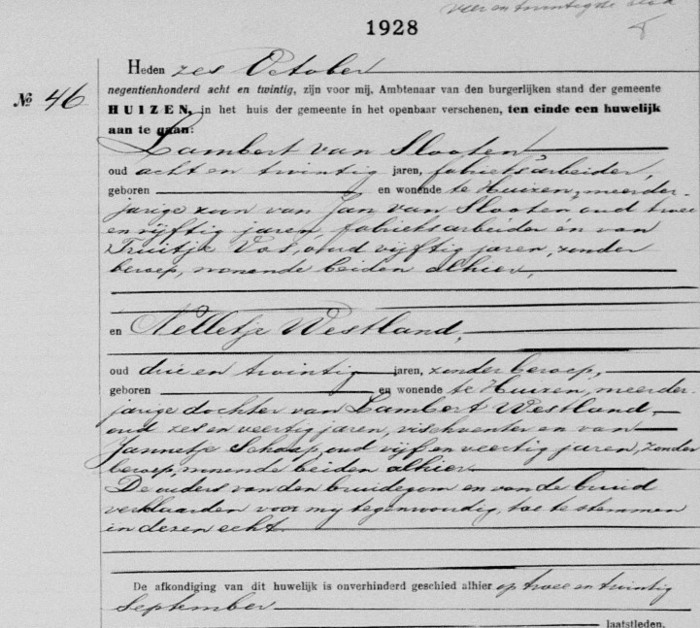 1928
Heden zes October
negentienhonderd acht en twintig, zijn voor mij, Ambtenaar van den burgerlijken stand der gemeente
No 46 HUIZEN, in het huis der gemeente in het openbaar verschenen, ten einde een huwelijk
aan te gaan:
Lambert van Slooten
oud acht en twintig jaren, fabrieksarbeider,
geboren en wonende te Huizen, meerder-
jarige zoon van Jan van Slooten, oud twee
en vijftig jaren, fabrieksarbeider en van
Truitje Vos, oud vijftig jaren, zonder
beroep, wonende beiden alhier,
en Nelletje Westland,
oud drie en twintig jaren, zonder beroep,
geboren en wonende te Huizen, meerder-
jarige dochter van Lambert Westland,
oud zes en veertig jaren, vischventer en van
Jannetje Schaap, oud vijf en veertig jaren, zonder
beroep, wonende beiden alhier.
De ouders van den bruidegom en van de bruid
verklaarden voor mij tegenwoordig, toe te stemmen
in dezen echt.
De afkondiging van dit huwelijk is onverhinderd geschied alhier op twee en twintig
September
laatstleden.